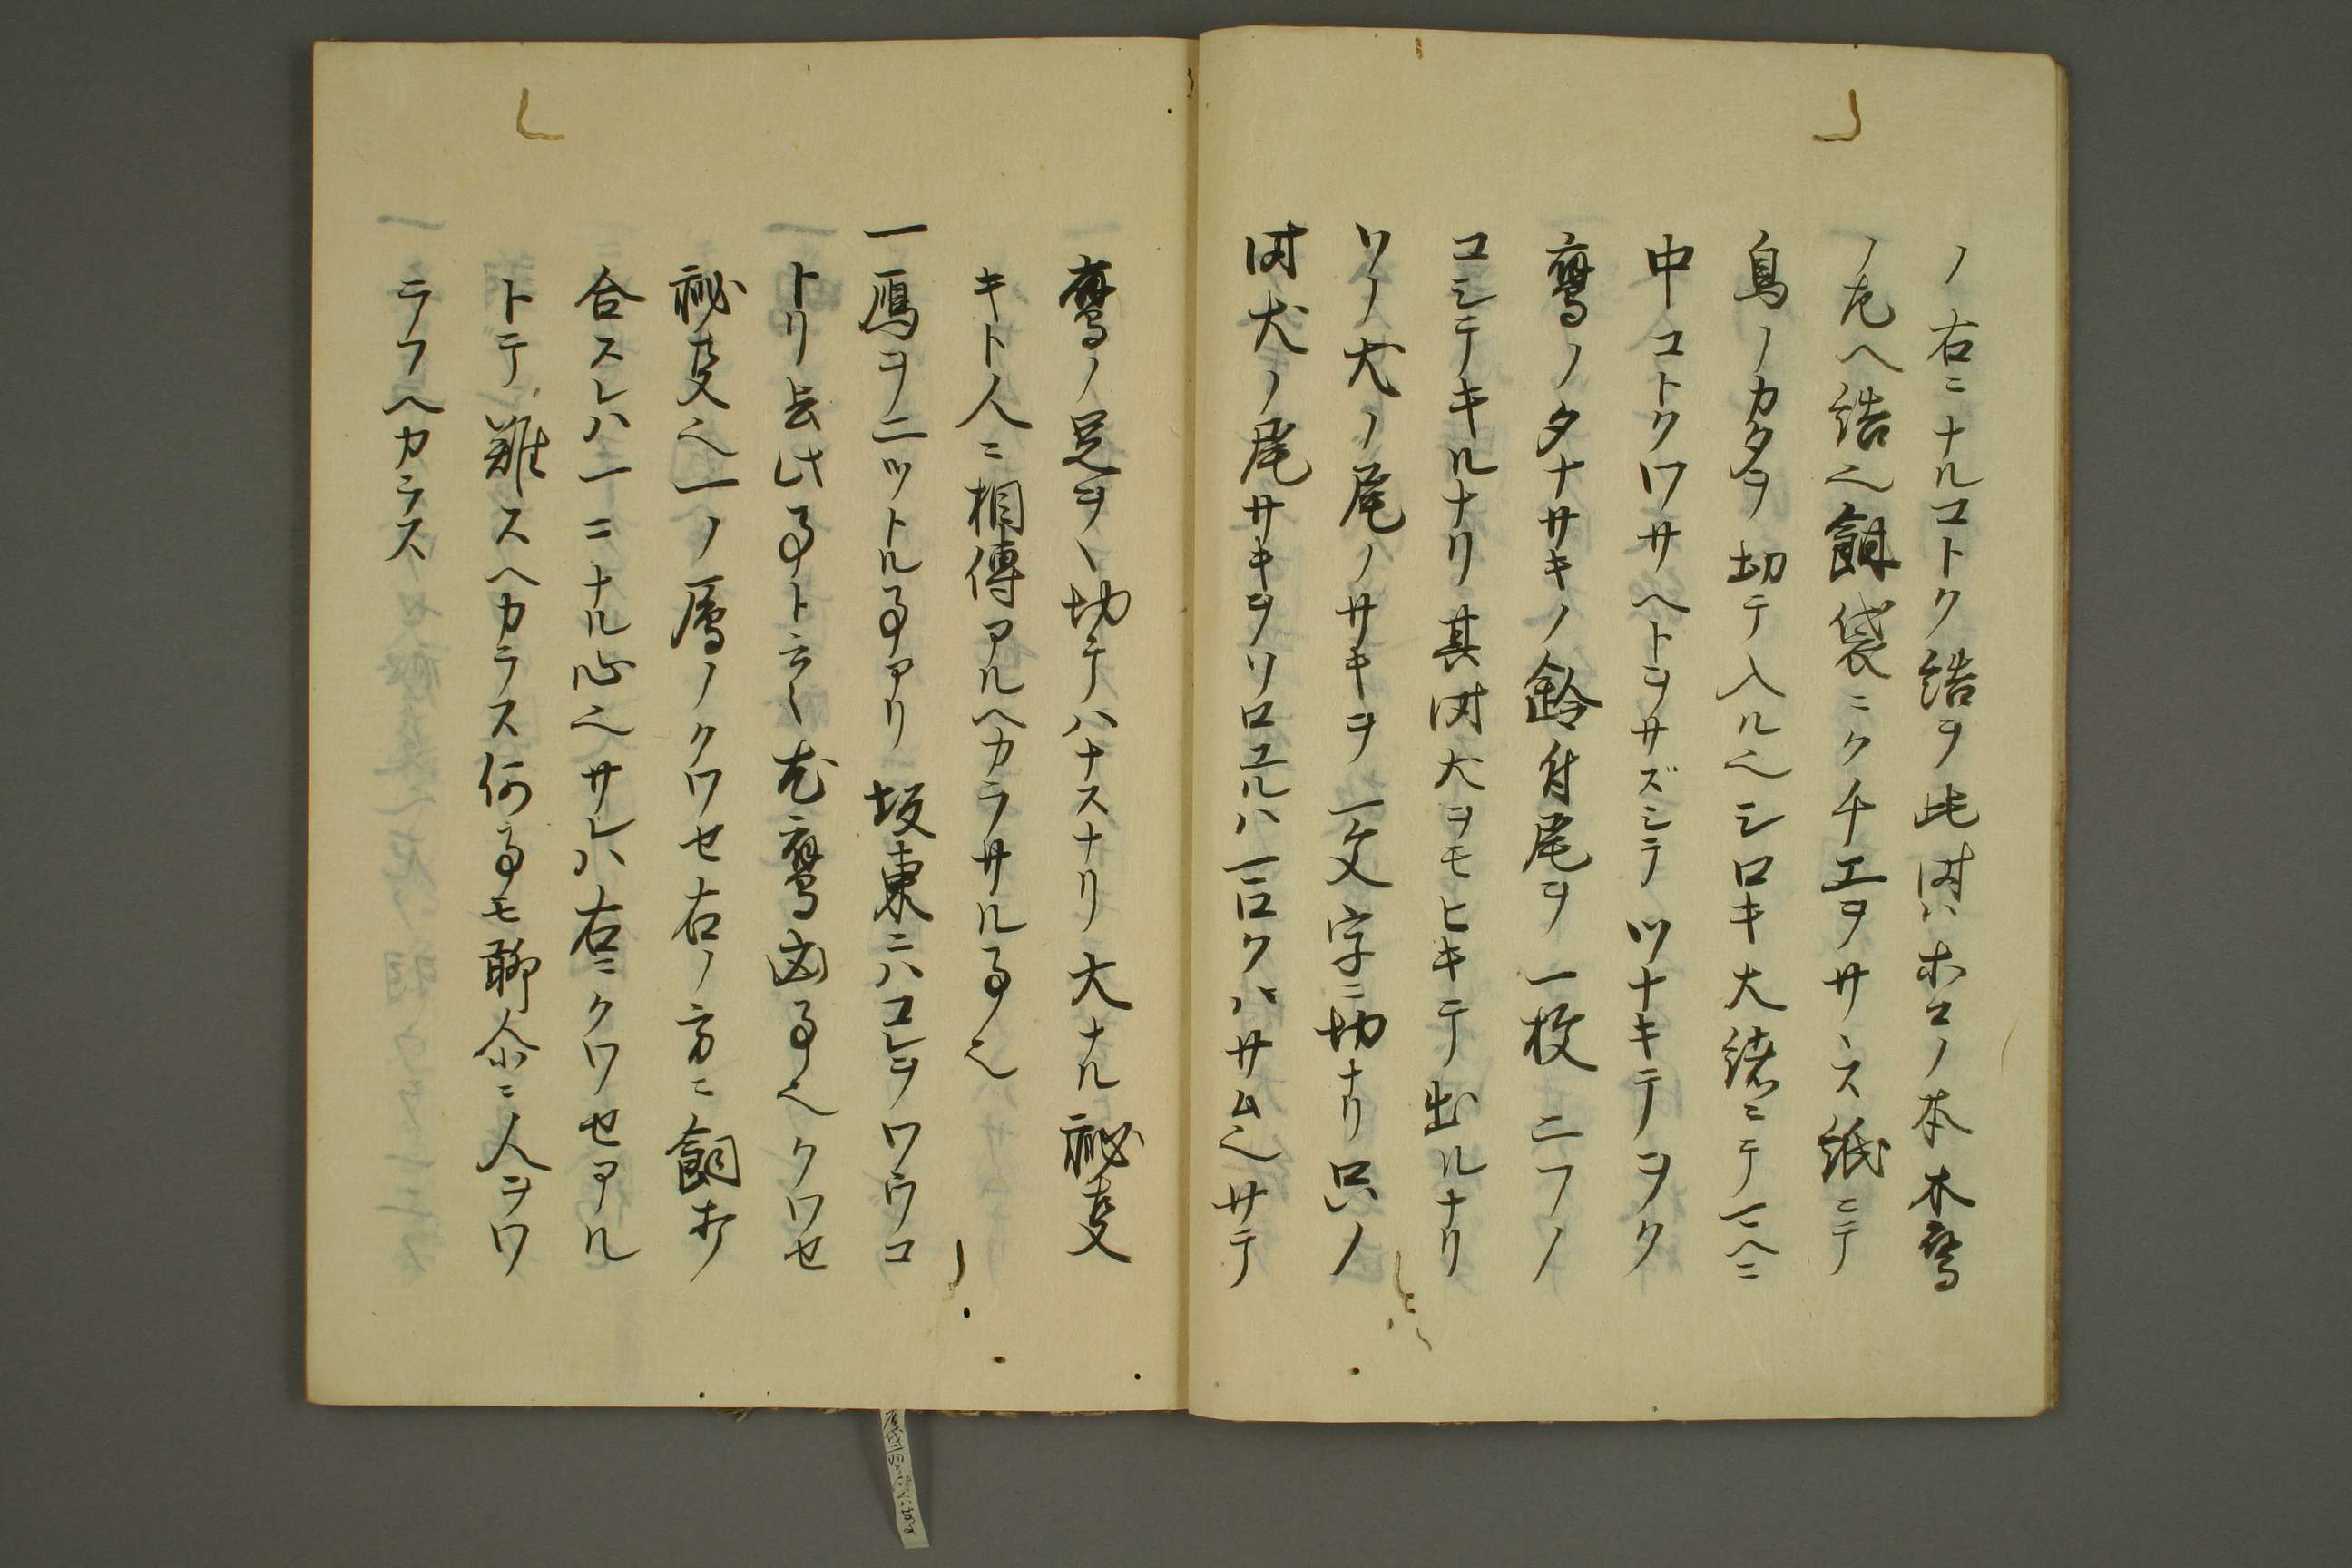 ノ右ニナルコトク結ヲ此時ハホコノ本木鷹
ノ左ヘ結也餌袋ニクチエヲサヽス紙ニテ
鳥ノカタヲ切テ入ル也シロキ大緒ニテ一ヘニ
中コトクワサヘトヲサズシテツナキテヲク
鷹ノタナサキノ鈴付尾ヲ一枚二フノ
コシテキルナリ其時犬ヲモヒキテ出ルナリ
ソノ犬ノ尾ノサキヲ一文字ニ切ナリ只ノ
時犬ノ尾サキヲソロユルハ一口クハサム也サテ
鷹ノ足ヲヽ切テハナスナリ大ナル秘叓
キト人ニ相傳アルヘカラサル事也
一鴈ヲ二ツトル事アリ坂東ニハコレヲワウコ
トリ云此事ト云々尤鷹凶事也クワセ
秘叓也一ノ鴈ノクワセ右ノ方ニ飼ホ
合スレハ一ニナル心也サレハ右ニクワセアル
トテ難スヘカラス何事モ聊尓ニ人ヲワ
ラフヘカラス